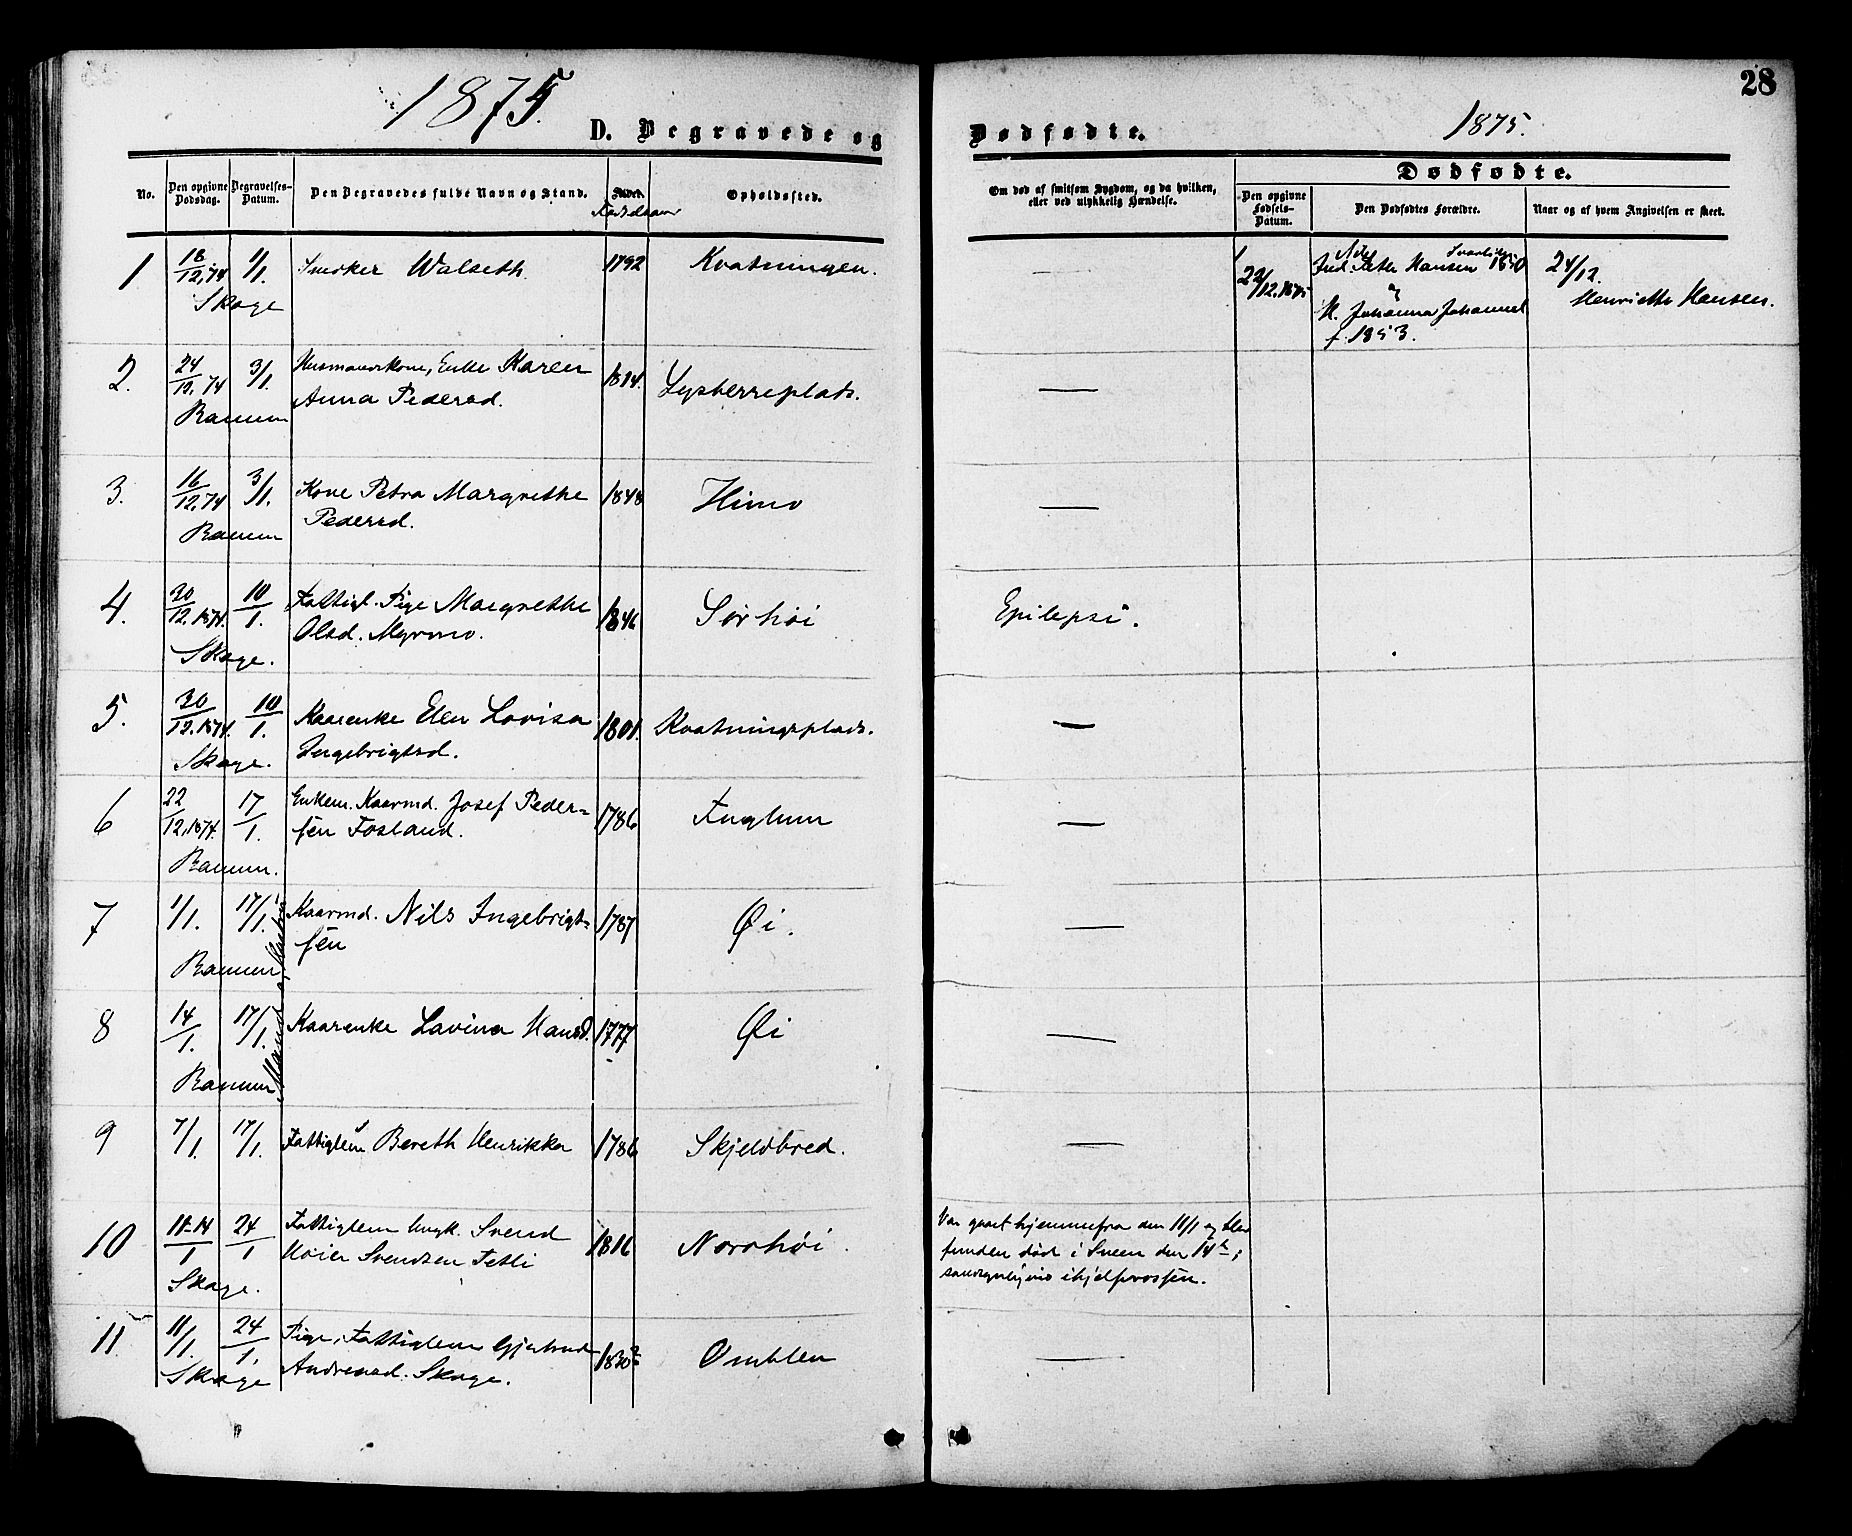 1875.
D. Begravede og
No.
Den opgivne Dødsdag.
Begravelses-Datum.
Den Begravedes fulde Navn og Stand.
Alder.
Fødselsaar
Opholdssted.
1 18/12.74 1/1. Walseth 1792 Kvatningen.
Skage
2. 24/12.74 3/1. Husmandskone, Enke Karen 1814. Lysberreplads.
Anna Pedersd.
Ranum
3. 16/12.74 3/1. Kone Petra Margrethe 1848 Himo
Pedersd.
Ranum
4. 30/12.1874. 10/1. Fattigl. Pige Margrethe 1846 Sørhøi
Olsd. Myrmo.
Skage.
5. 30/12.1874. 10/1. Kaarenke Elen Lovisa 1801. Kvatningsplads.
Ingebrigtsd.
Skage.
6 22/12.1874. 17/1. Enkem. Kaarmd. Josef Peder= 1786 Fuglum
sen Fosland.
Ranum.
7 1/1. 17/1. Kaarmd. Nils Ingebrigt= 1787 Øi.
sen
Ranum
8 14/1. 17/1. Kaarenke Lavina Hansd. 1777 Øi
Ranum
9 7/1. 17/1. Fattiglem Bereth Henrikka 1786 Skjeldbred.
10 11-14/1 24/1 Fattiglem Ungk. Svend 1816 Norrhøi.
Høier Svendsen Fetli
Skage.
11. 11/1. 24/1. Pige, Fattiglem Gjertrud 1830 Omblen
Andreasd. Skage.
Skage
Dødfødte.
1875.
28
Om død af smitsom Sygdom, og da hvilken,
eller ved ulykkelig Hændelse.
Dødfødte.
Den opgivne Fødsels-Datum.
Den Dødfødtes Forældre.
Naar og af hvem Angivelsen er skeet.
—
1
22/12.1875
Ind. Peter Hansen 1850
og
H. Johanna Johannesd
f. 1853.
24/12.
Henriette Hansen.
—
—
Epilepsi.
—
—
—
—
—
Var gaaet hjemmefra den 11/1 og blev
funden død i Sneen den 14de;
sandsynligvis ihjelfrossen.
—